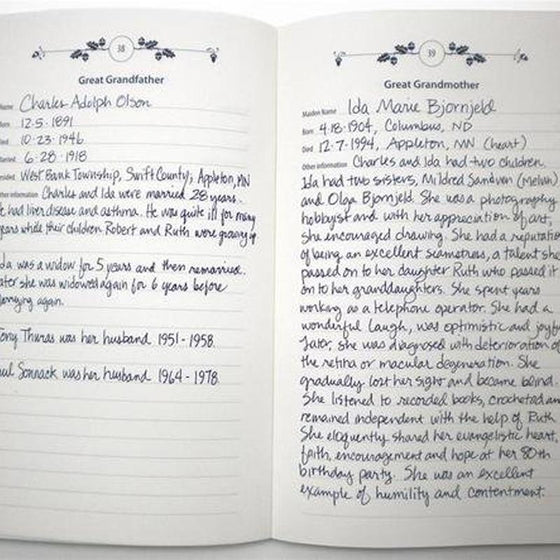 38
Great Grandfather
Name Charles Adolph Olson
Born 12-5-1891
Died 10-23-1946
Married 6-28-1918
West Bank Township, Swift County; Appleton, MN
Other information Charles and Ida were married 28 years.
He had liver disease and asthma. He was quite ill for many
years while their children Robert and Ruth were growing up
Ida was a widow for 5 years and then remarried.
Later she was widowed again for 6 years before
marrying again.
Tony Thuras was her husband 1951-1958.
Sonnack was her husband 1964-1978.
39
Great Grandmother
Maiden Name Ida Marie Bjornjeld
Born 4-18-1904, Columbus, ND
Died 12-7-1994, Appleton, MN (heart)
Other information Charles and Ida had two children.
Ida had two sisters, Mildred Sandven (Melvin)
and Olga Bjornjeld. She was a photography
hobbyist and with her appreciation of art,
she encouraged drawing. She had a reputation
of being an excellent seamstress, a talent she
passed on to her daughter Ruth who passed it
on to her granddaughters. She spent years
working as a telephone operator. She had a
wonderful laugh, was optimistic and joyful
Later, she was diagnosed with deterioration of
the retina or macular degeneration. She
gradually lost her sight and became blind.
She listened to recorded books, crocheted and
remained independent with the help of Ruth.
She eloquently shared her evangelistic heart,
faith, encouragement and hope at her 80th
birthday party. She was an excellent
example of humility and contentment.